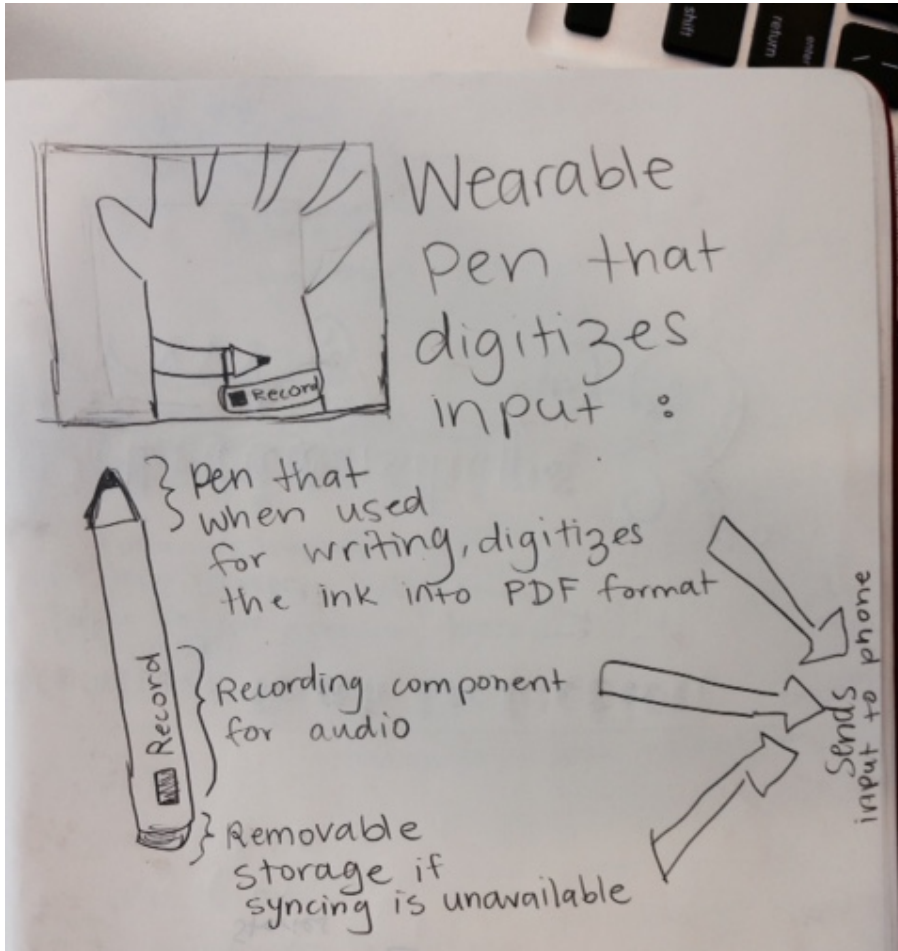 shift
enter
return
Wearable
pen that
digitizes
input :
Record
pen that
when used
for writing, digitizes
the ink into PDF format
Record
Recording component
for audio
Removable
storage if
syncing is unavailable
Sends
input to phone